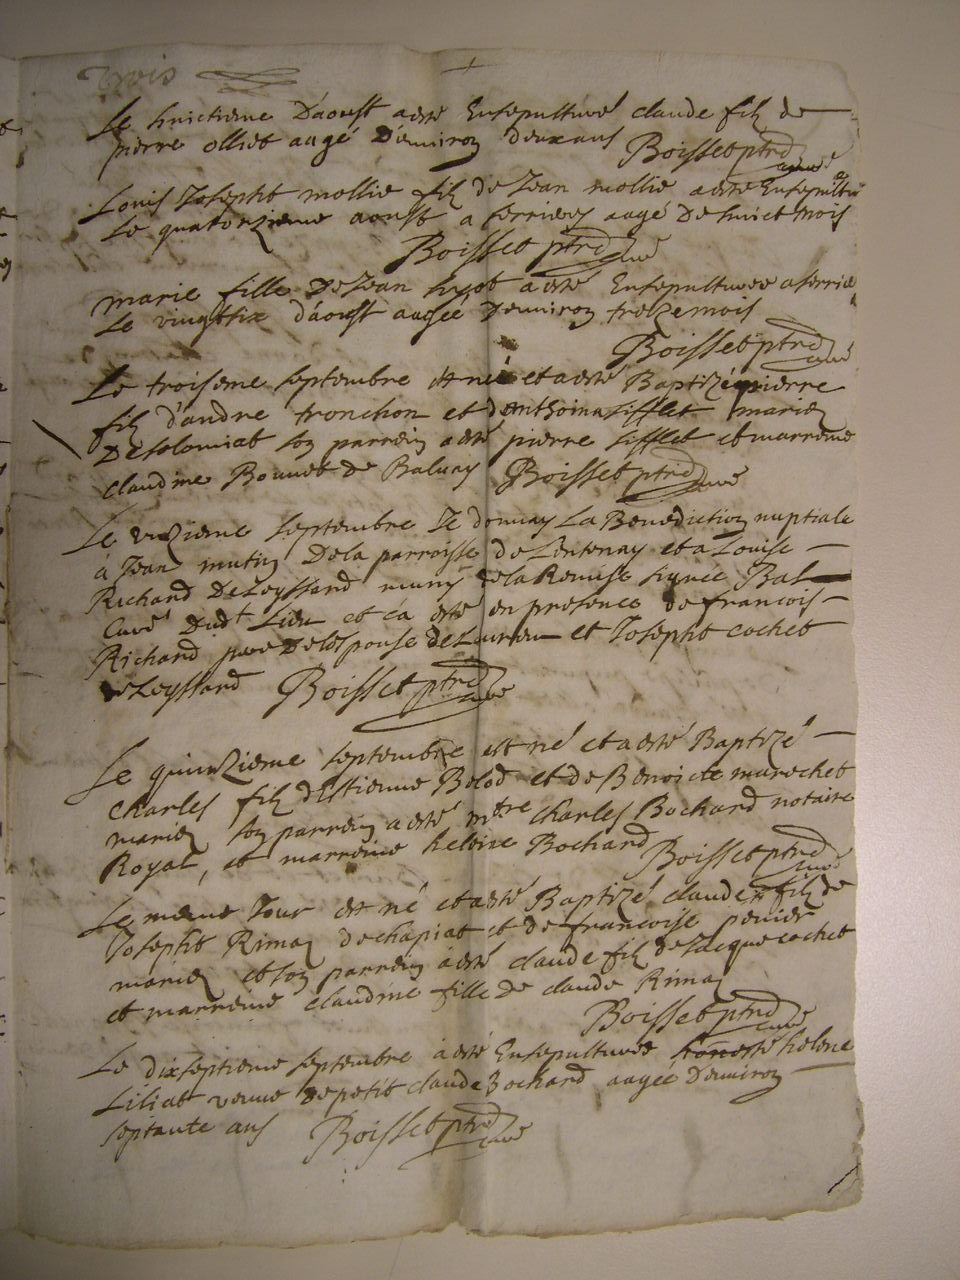 Trois
Le huictieme D'aoust a esté Ensepulturé claude filz de
pierre olliet aagé D'enuiron deux ans Boisset ptre curé
Louis Josepht mollie filz de Jean mollie a esté Ensepulturé
Le quatorzieme aoust a ferrieres aagé De huict mois
Boisset ptre curé
marie fille De Jean a esté Ensepulturee a
Le vingtsix d'aoust aagée D'enuiron treize mois
Boisset ptre curé
Le troisieme septembre est né et a esté Baptizé pierre
filz d'andre tronchon et d'anthoina sifflet mariez
De solomiat son parrein a esté pierre sifflet et marreine
claudine Bonnet de Baluay Boisset ptre curé
Le unzieme septembre Je donnay La Benediction nuptiale
à Jean mutin De la parroisse de Lentenay et a Louise
Richard De Leyssard muny de la Remise signée Bal
Curé dudt Lieu et ca esté en presence de francois
Richard pere De lespouse de et Josepht cochet
de Leyssard Boisset ptre curé
Le quinzieme septembre est né et a esté Baptizé
Charles filz d'Estienne Belod et de Benoicte marechet
mariez son parrein a esté mtre Charles Bochard notaire
Royal, et marreine heleine Bochard Boisset ptre curé
Le meme Jour est né et a esté Baptizé claude filz de
Josepht Rimaz de chapiat et de francoise perier
mariez et son parrein à esté claude filz de Jacque cochet
et marreine claudine fille de claude Rimaz
Boisset ptre curé
Le dixseptieme septembre à esté Ensepulturée honeste helene
Liliat veuue de petit claude Bochard aagée D'enuiron
septante ans Boisset ptre curé